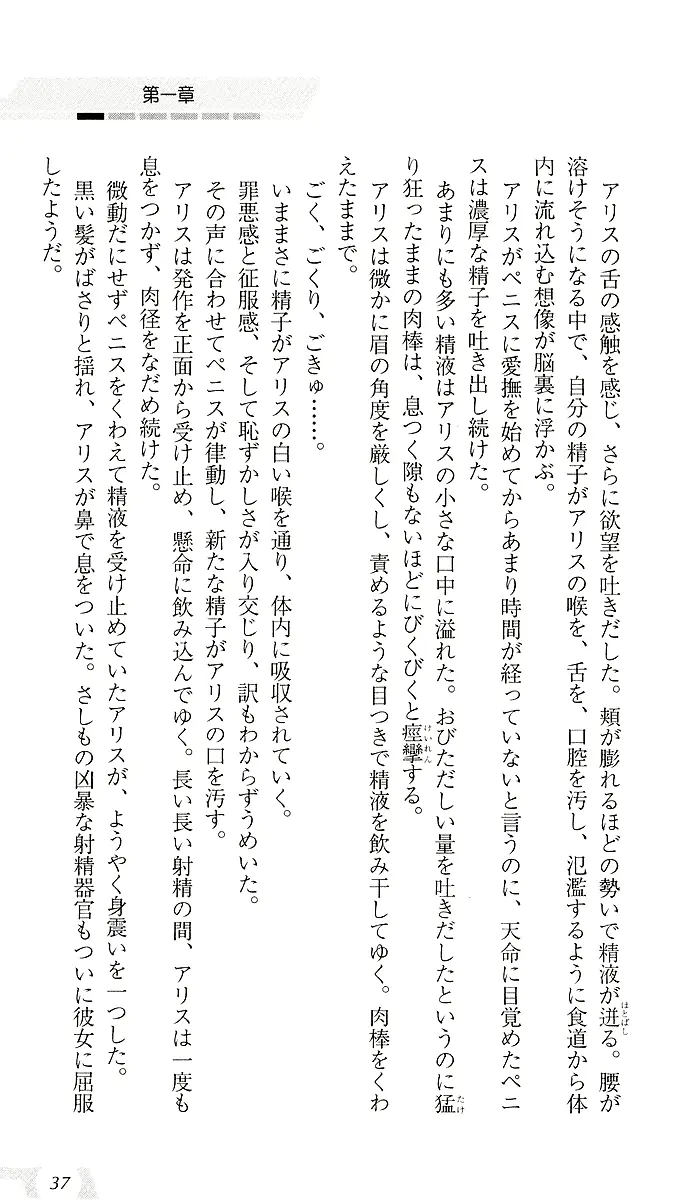 第一章
アリスの舌の感触を感じ、さらに欲望を吐きだした。頬が膨れるほどの勢いで精液が迸る。腰が
ほとばし
溶けそうになる中で、自分の精子がアリスの喉を、舌を、口腔を汚し、氾濫するように食道から体
内に流れ込む想像が脳裏に浮かぶ。
アリスがペニスに愛撫を始めてからあまり時間が経っていないと言うのに、天命に目覚めたペニ
スは濃厚な精子を吐き出し続けた。
あまりにも多い精液はアリスの小さな口中に溢れた。おびただしい量を吐きだしたというのに猛
たけ
り狂ったままの肉棒は、息つく隙もないほどにびくびくと痙攣する。
けいれん
アリスは微かに眉の角度を厳しくし、責めるような目つきで精液を飲み干してゆく。肉棒をくわ
えたままで。
ごく、ごくり、ごきゅ……。
いままさに精子がアリスの白い喉を通り、体内に吸収されていく。
罪悪感と征服感、そして恥ずかしさが入り交じり、訳もわからずうめいた。
その声に合わせてペニスが律動し、新たな精子がアリスの口を汚す。
アリスは発作を正面から受け止め、懸命に飲み込んでゆく。長い長い射精の間、アリスは一度も
息をつかず、肉径をなだめ続けた。
微動だにせずペニスをくわえて精液を受け止めていたアリスが、ようやく身震いを一つした。
黒い髪がばさりと揺れ、アリスが鼻で息をついた。さしもの凶暴な射精器官もついに彼女に屈服
したようだ。
37